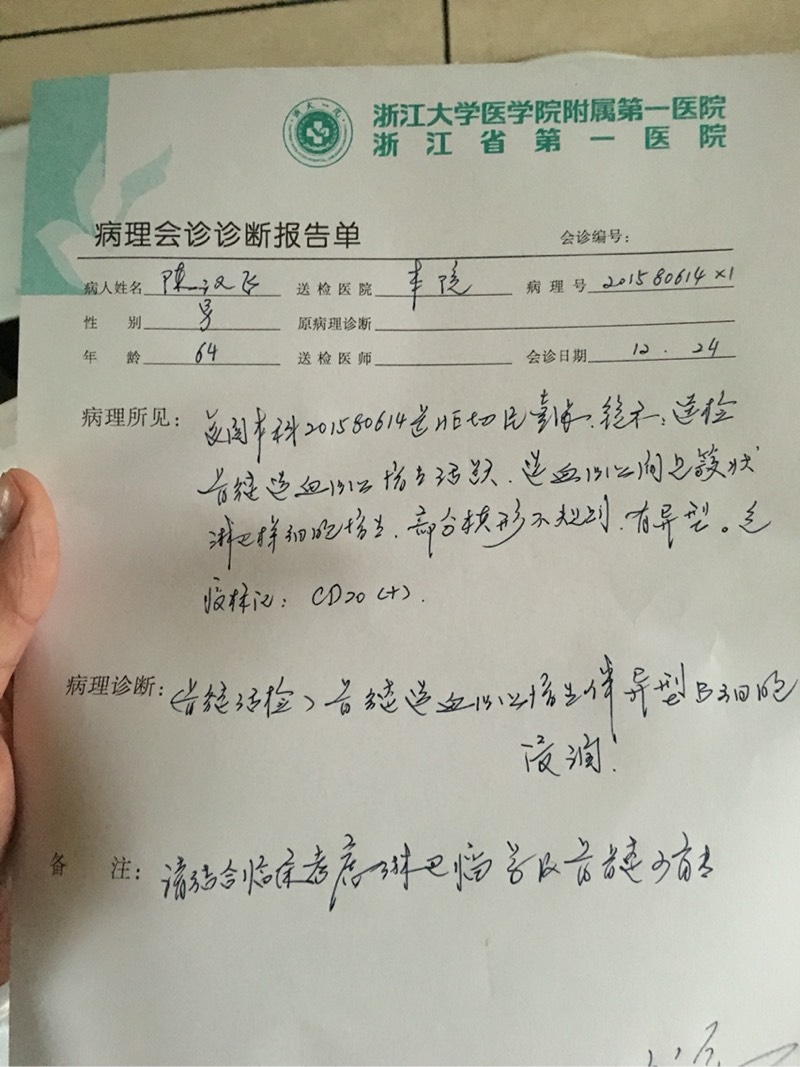 浙大一院
浙江大学医学院附属第一医院
浙江省第一医院
病理会诊诊断报告单
会诊编号:
病人姓名 陈 送检医院 本院 病理号 201580614×1
性别 男 原病理诊断
年龄 64 送检医师 会诊日期 12.24
病理所见: 复阅本科201580614送HE切片, 镜示: 送检
骨髓造血细胞增生活跃. 造血细胞间见簇状
淋巴样细胞增生, 部分核形不规则, 有异型。免
疫标记: CD20(+).
病理诊断: (骨髓活检)骨髓造血细胞增生伴异型B细胞
浸润!
备注: 请结合临床考虑淋巴瘤累及骨髓